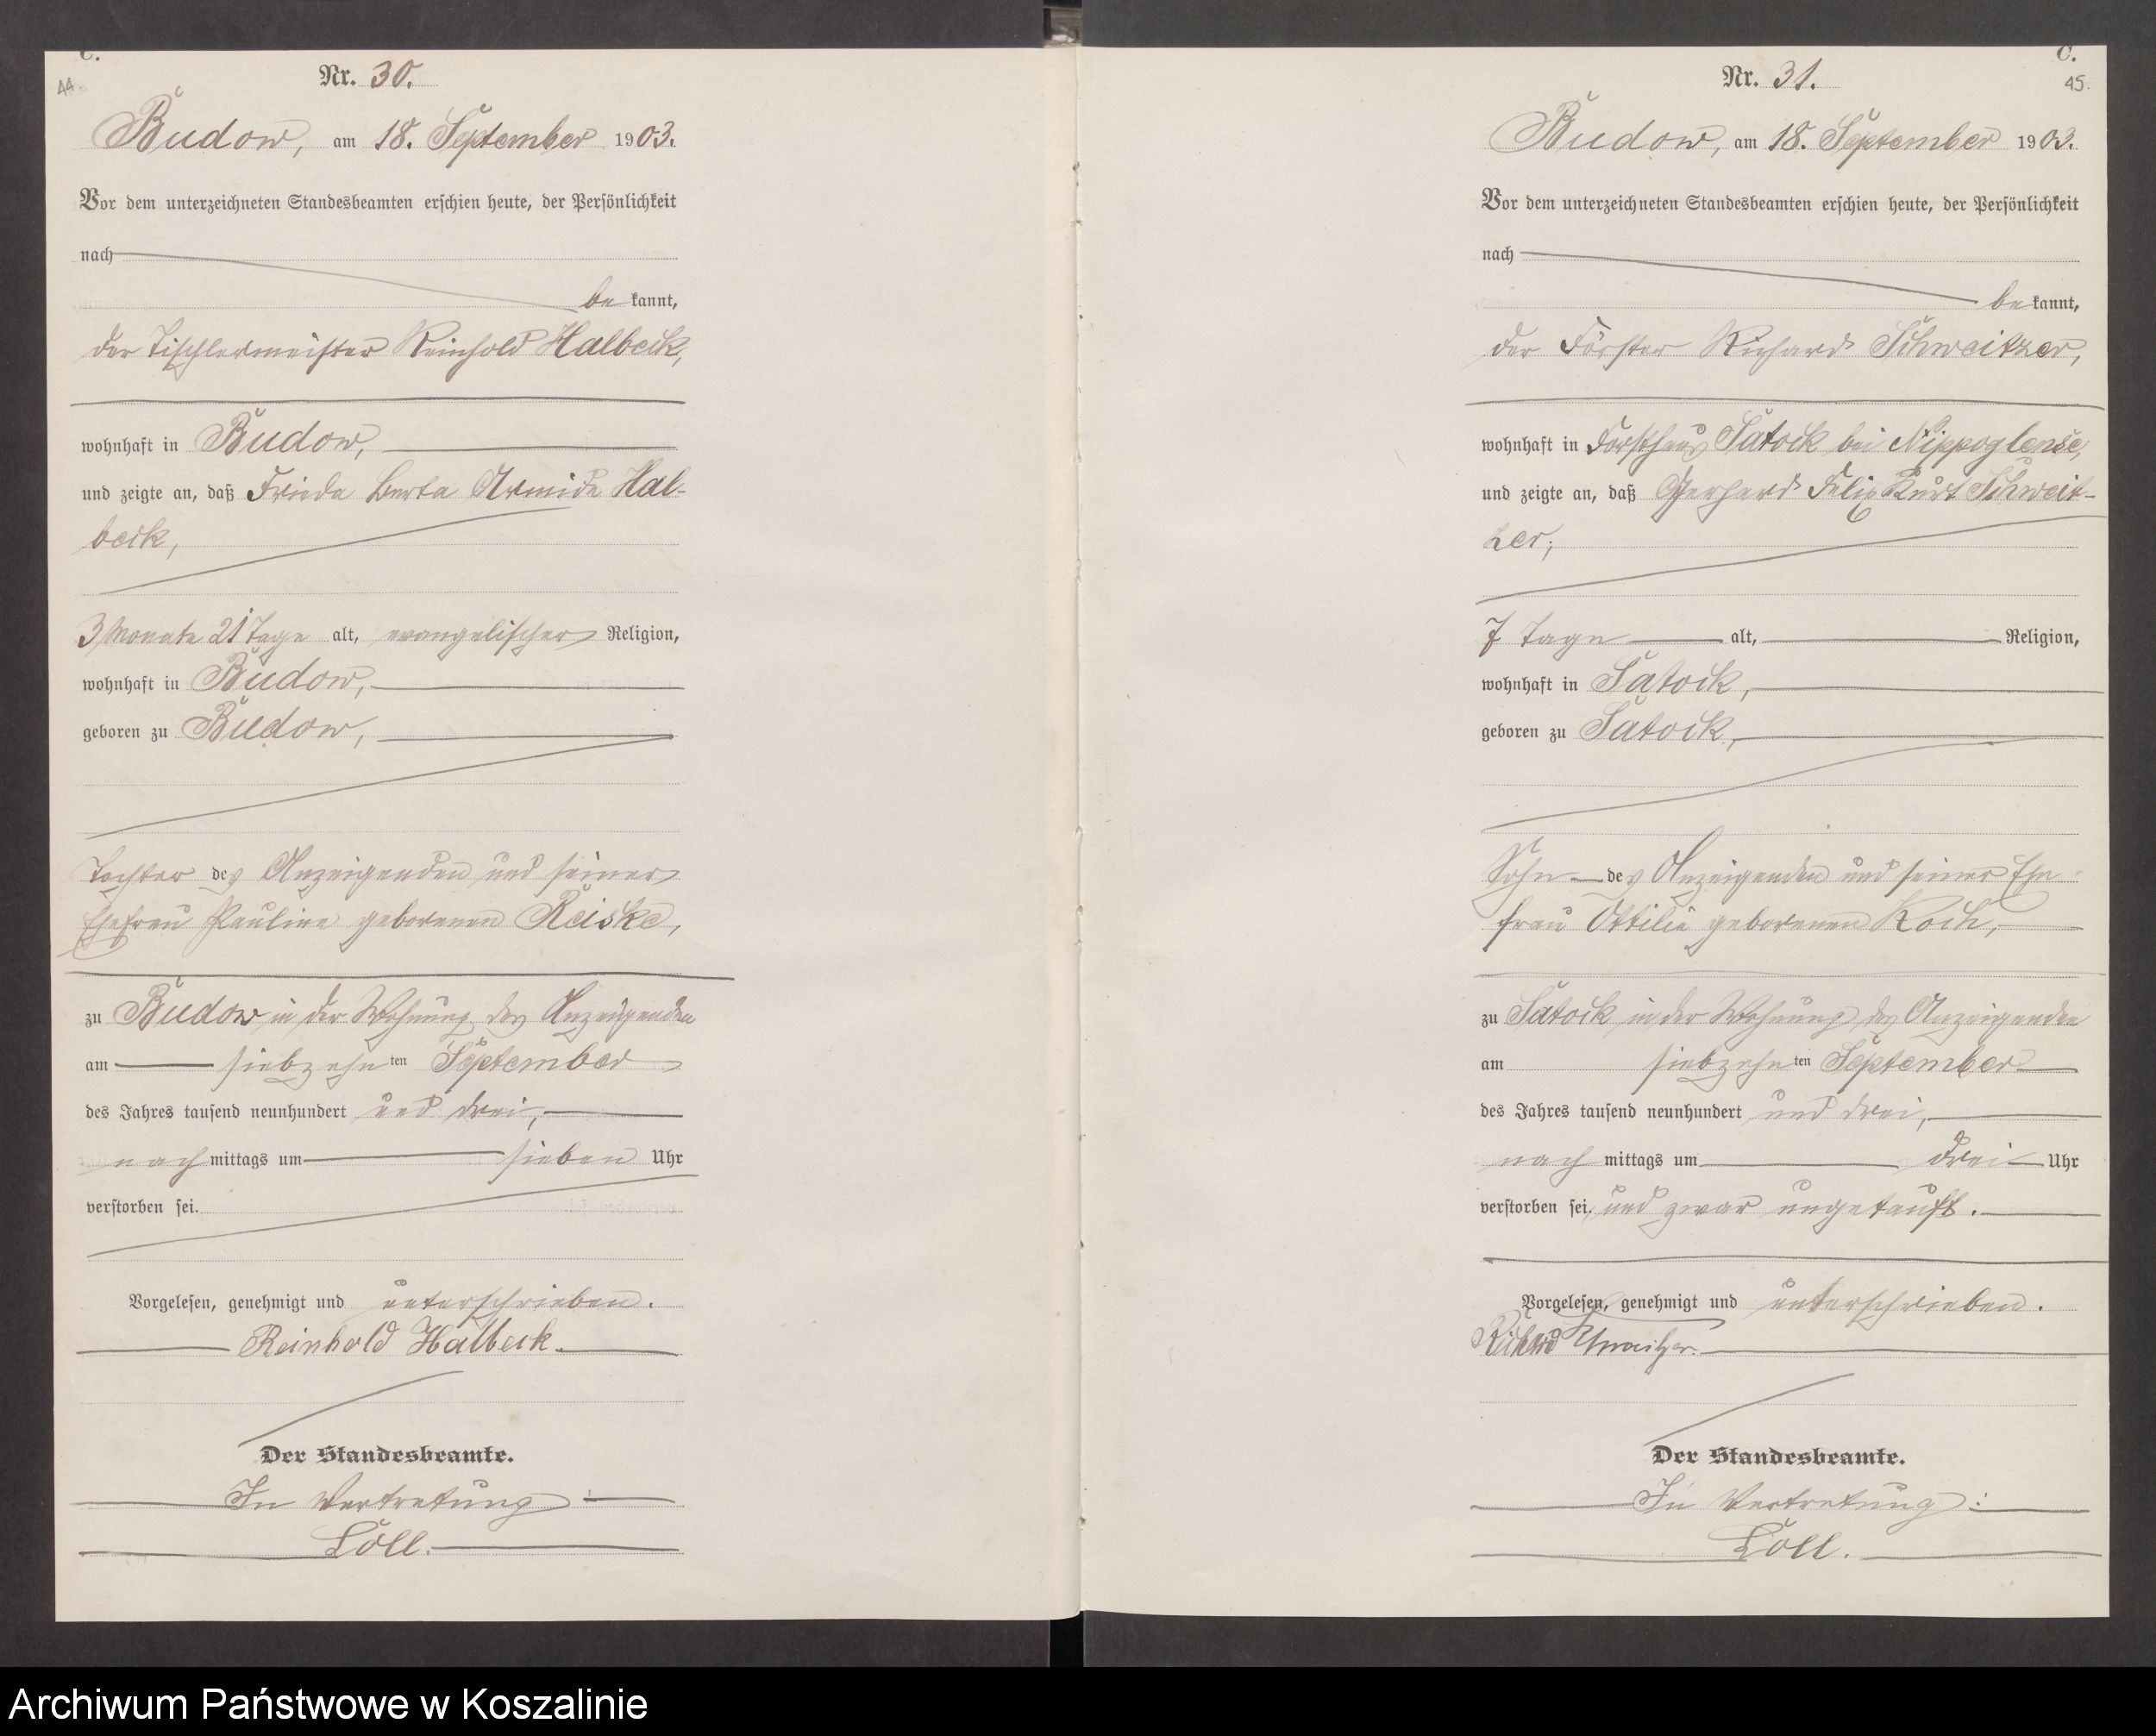 C.
44.
Nr. 30.
Budow, am 18. September 1903.
Vor dem unterzeichneten Standesbeamten erschien heute, der Persönlichkeit
nach
be kannt,
der Tischlermeister Reinhold Halbeck,
wohnhaft in Budow,
und zeigte an, daß Frieda Berta Armida Hal-
beck,
3 Monate 21 Tage alt, evangelischer Religion,
wohnhaft in Budow,
geboren zu Budow,
Tochter des Anzeigenden und seiner
Ehefrau Pauline geborenen Reiske,
zu Budow in der Wohnung des Anzeigenden
am siebzehn ten September
des Jahres tausend neunhundert und drei,
nach mittags um sieben Uhr
verstorben sei.
Vorgelesen, genehmigt und unterschrieben.
Reinhold Halbeck.
Der Standesbeamte.
In Vertretung:
Löll.
C.
45.
Nr. 31.
Budow, am 18. September 1903.
Vor dem unterzeichneten Standesbeamten erschien heute, der Persönlichkeit
nach
be kannt,
der Förster Richard Schweitzer,
wohnhaft in Forsthaus Satock bei Nippoglense,
und zeigte an, daß Gerhard Felix Kurt Schweit-
zer;
7 Tage alt, Religion,
wohnhaft in Satock,
geboren zu Satock,
Sohn des Anzeigenden und seiner Ehe-
frau Ottilie geborenen Koch,
zu Satock in der Wohnung des Anzeigenden
am siebzehn ten September
des Jahres tausend neunhundert und drei,
nach mittags um drei Uhr
verstorben sei, und zwar ungetauft.
Vorgelesen, genehmigt und unterschrieben.
Richard Schweitzer.
Der Standesbeamte.
In Vertretung:
Löll.
Archiwum Państwowe w Koszalinie